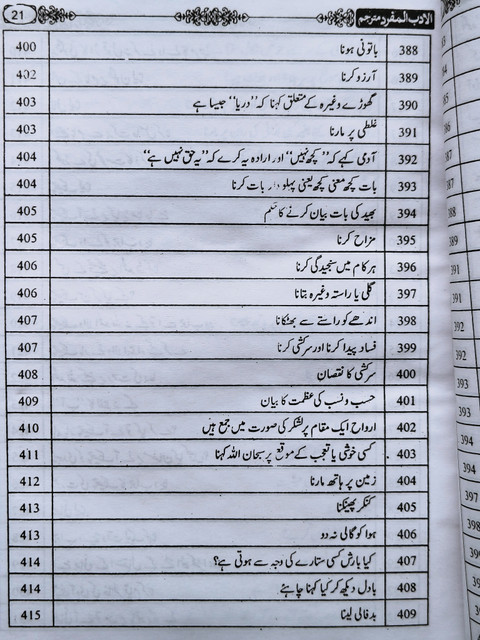 الادب المفرد مترجم 21
388 باتونی ہونا 400
389 آرزو کرنا 402
390 گھوڑے وغیرہ کے متعلق کہنا کہ "دریا" جیسا ہے 403
391 غلطی پر مارنا 403
392 آدمی کہے کہ "کچھ نہیں" اور ارادہ یہ کرے کہ "یہ حق نہیں ہے" 404
393 بات کچھ معنی کچھ یعنی پہلو دار بات کرنا 404
394 بھید کی بات بیان کرنے کا حکم 405
395 مزاح کرنا 405
396 ہر کام میں سنجیدگی کرنا 406
397 گلی یا راستہ وغیرہ بتانا 406
398 اندھے کو راستے سے بھٹکانا 407
399 فساد پیدا کرنا اور سرکشی کرنا 407
400 سرکشی کا نقصان 408
401 حسب و نسب کی عظمت کا بیان 409
402 ارواح ایک مقام پر لشکر کی صورت میں جمع ہیں 410
403 کسی خوشی یا تعجب کے موقع پر سبحان اللہ کہنا 411
404 زمین پر ہاتھ مارنا 412
405 کنکر پھینکنا 413
406 ہوا کو گالی نہ دو 413
407 کیا بارش کسی ستارے کی وجہ سے ہوتی ہے؟ 414
408 بادل دیکھ کر کیا کہنا چاہئے 414
409 بدفالی لینا 415